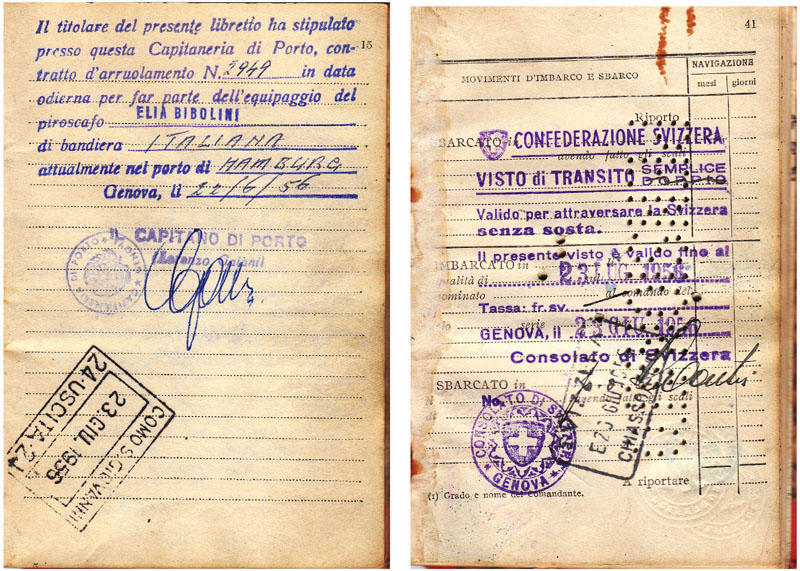 Il titolare del presente libretto ha stipulato
presso questa Capitaneria di Porto, con-
15
tratto d'arruolamento N. 2949 in data
odierna per far parte dell'equipaggio del
piroscafo ELIA BIBOLINI
di bandiera ITALIANA
attualmente nel porto di HAMBURG
Genova, lì 22/6/56
IL CAPITANO DI PORTO
COMO S. GIOVANNI
23 GIU 1956
24-USCITA 24
41
NAVIGAZIONE
MOVIMENTI D'IMBARCO E SBARCO
mesi giorni
Riporto
SBARCATO in
CONFEDERAZIONE SVIZZERA
avendo fatto gli scali
VISTO di TRANSITO SEMPLICE
DOPPIO
Valido per attraversare la Svizzera
senza sosta.
Il presente visto è valido fino al
IMBARCATO in
23 LUG 1956
qualità di
nominato al comando del
Tassa: fr. sv.
serie
GENOVA, il 23 GIU 195
Consolato di Svizzera
SBARCATO in
No.
avendo fatto gli scali
CHIASSO
CONSOLATO DI SVIZZERA
GENOVA
A riportare
(1) Grado e nome del comandante.